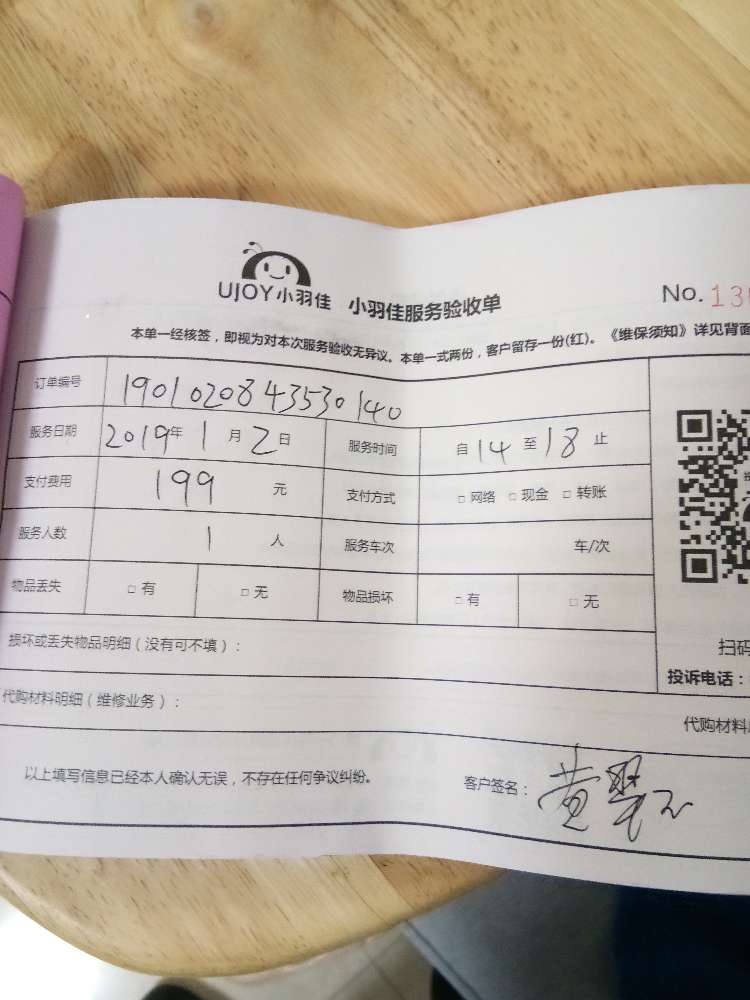 UJOY小羽佳 小羽佳服务验收单 No.13
本单一经核签，即视为对本次服务验收无异议。本单一式两份，客户留存一份(红)。《维保须知》详见背面
订单编号 1901020843530140
服务日期 2019年1月2日 服务时间 自14至18止
支付费用 199元 支付方式 □网络 □现金 □转账
服务人数 1人 服务车次 车/次
物品丢失 □有 □无 物品损坏 □有 □无
损坏或丢失物品明细（没有可不填）：
扫码
投诉电话：
代购材料明细（维修业务）：
代购材料
以上填写信息已经本人确认无误，不存在任何争议纠纷。 客户签名：黄